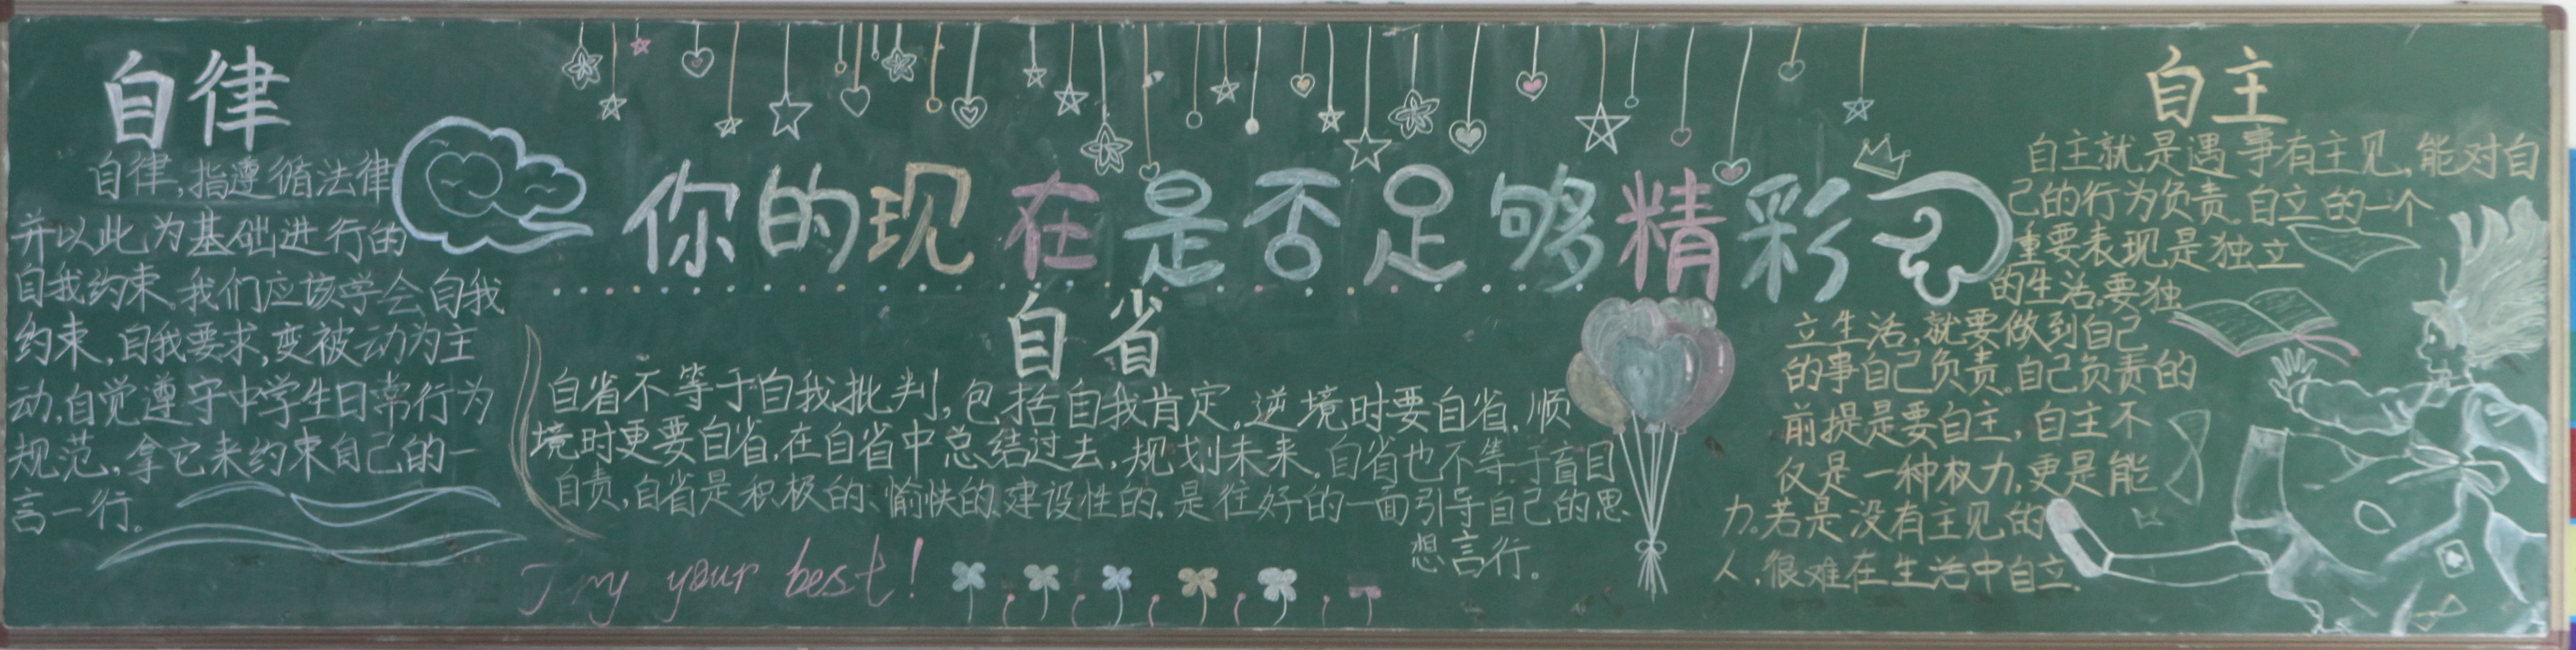 你的现在是否足够精彩
自律
自律,指遵循法律
并以此为基础进行的
自我约束。我们应该学会自我
约束,自我要求,变被动为主
动,自觉遵守中学生日常行为
规范,拿它来约束自己的一
言一行。
自省
自省不等于自我批判,包括自我肯定。逆境时要自省,顺
境时更要自省,在自省中总结过去,规划未来。自省也不等于盲目
自责,自省是积极的、愉快的、建设性的,是往好的一面引导自己的思
想言行。
Try your best!
自主
自主就是遇事有主见,能对自
己的行为负责。自立的一个
重要表现是独立
的生活,要独
立生活,就要做到自己
的事自己负责。自己负责的
前提是要自主,自主不
仅是一种权力,更是能
力。若是没有主见的
人,很难在生活中自立.